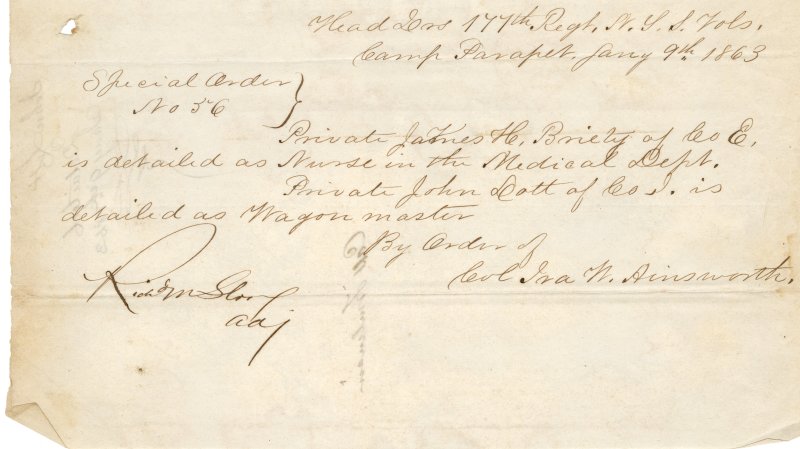 Head Qrs 177th Regt. N. Y. S. Vols.
Camp Parapet. Jany 9th. 1863
Special Order
No 56
Private James H. Briety of Co E.
is detailed as Nurse in the Medical Dept.
Private John Dott of Co I. is
detailed as Wagon master
By Order of
Col Ira W. Ainsworth.
Richd M
Adj